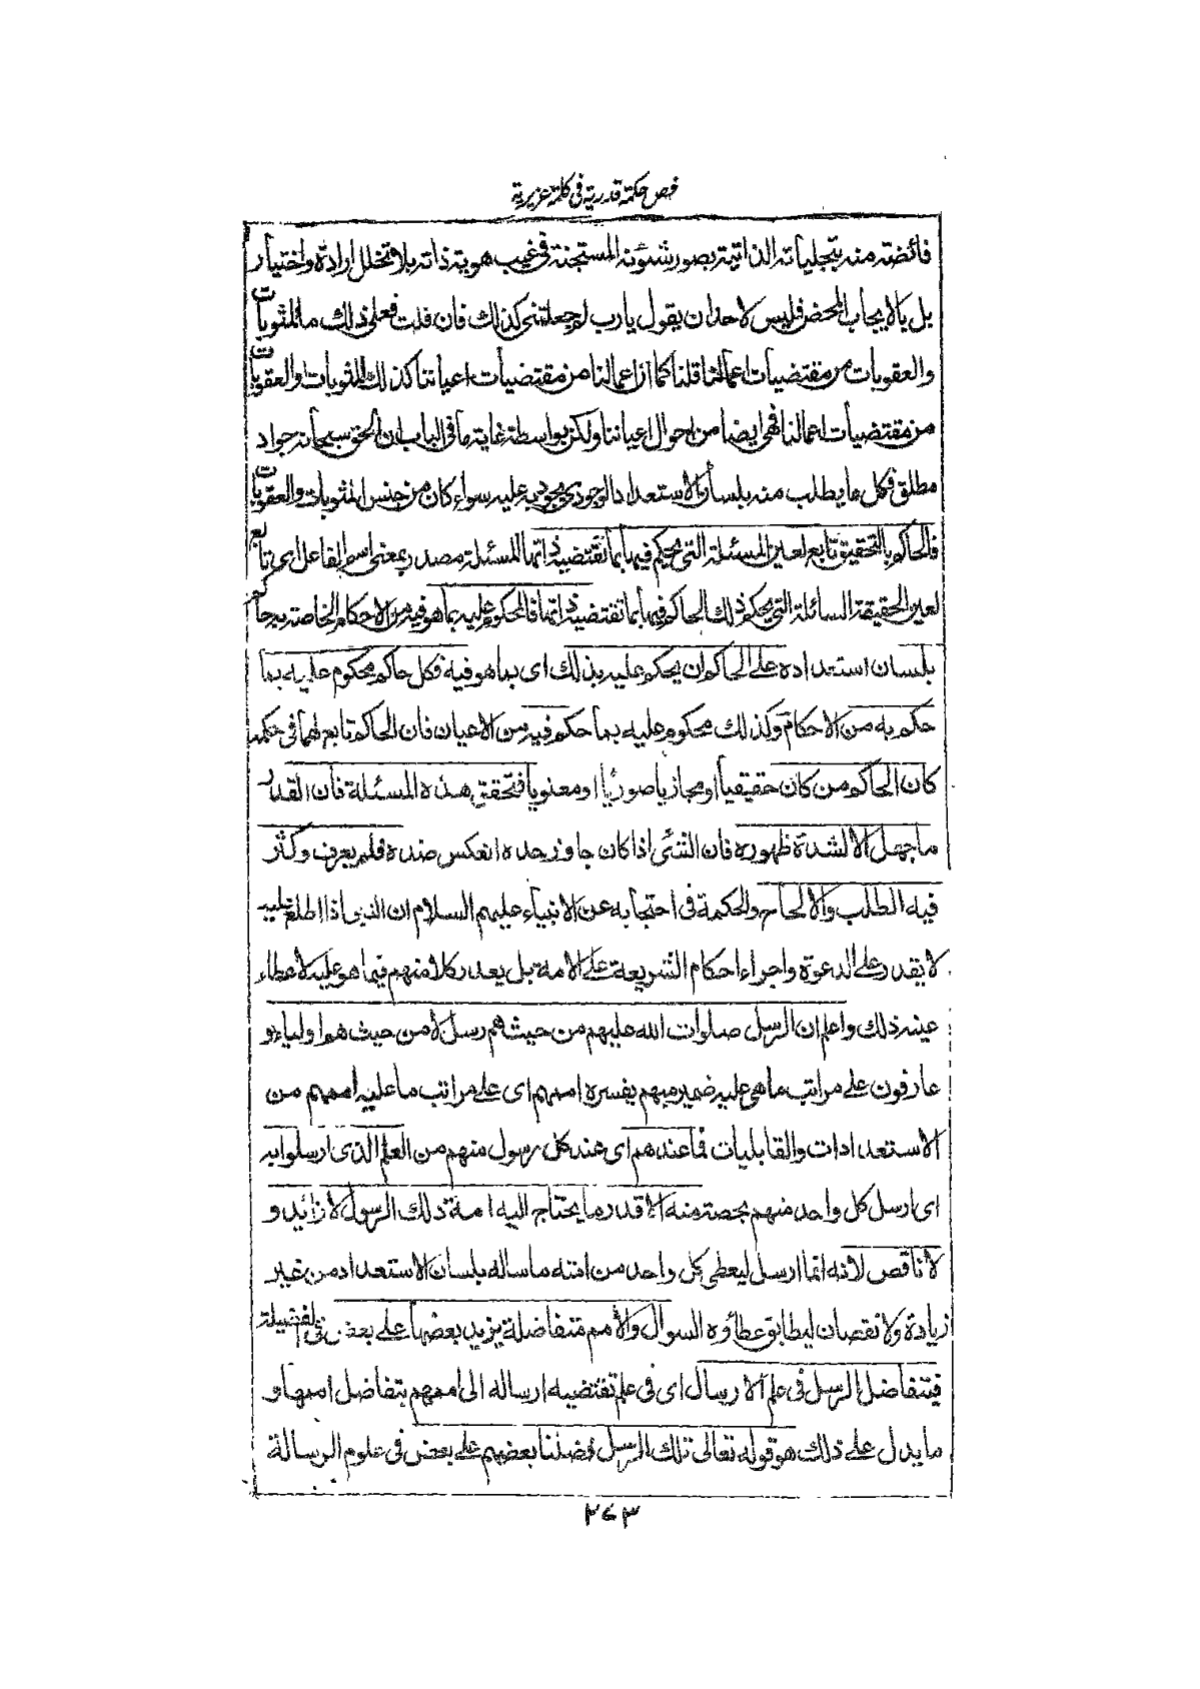 فص حكمة قدرية فى كلمة عزيرية
فائضة منه بتجلياته الذاتية بصور شئونه المستجنة فى غيب هوية ذاته بلا تخلل ارادة واختيار
بل بالايجاب المحض فليس لاحد ان يقول يا رب لم جعلتنى كذلك فان قلت فعلى ذلك ما المثوبات
والعقوبات من مقتضيات اعمالنا قلنا كما ان اعمالنا من مقتضيات اعياننا كذلك المثوبات والعقوبات
من مقتضيات اعمالنا فهى ايضا من احوال اعياننا ولكن بواسطة غاية ما فى الباب ان الحق سبحانه جواد
مطلق فكل ما يطلب منه بلسان الاستعداد الوجودى يجود به عليه سواء كان من جنس المثوبات والعقوبات
فالحاكم بالتحقيق تابع لعين المسئلة التى يحكم فيها بما تقتضيه ذاتها المسئلة مصدر بمعنى اسم الفاعل اى تابع
لعين الحقيقة السائلة التى يحكم ذلك الحاكم فيها بما تقتضيه ذاتها فالمحكوم عليه بما هو فيه من الاحكام الخاصة به حاكم
بلسان استعداده على الحاكم ان يحكم عليه بذلك اى بما هو فيه فكل حاكم محكوم عليه بما
حكم به من الاحكام وكذلك محكوم عليه بما حكم فيه من الاعيان فان الحاكم تابع لهما فى حكمه
كان الحاكم من كان حقيقيا او مجازيا صوريا او معنويا فتحقق هذه المسئلة فان القدر
ما جهل الا لشدة ظهوره فان الشئ اذا كان جاوز حده انعكس ضده فلم يعرف وكثر
فيه الطلب والالحاح والحكمة فى احتجابه عن الانبياء عليهم السلام ان النبى اذا اطلع عليه
لا يقدر على الدعوة واجراء احكام الشريعة على الامة بل يعذر كلا منهم فيما هو عليه لاعطاء
عينه ذلك واعلم ان الرسل صلوات الله عليهم من حيث هم رسل لا من حيث هم اولياء و
عارفون على مراتب ما هى عليه ضمير مبهم يفسره اممهم اى على مراتب ما عليه اممهم من
الاستعدادات والقابليات فما عندهم اى عند كل رسول منهم من العلم الذى ارسلوا به
اى ارسل كل واحد منهم بحصة منه الا قدر ما يحتاج اليه امة ذلك الرسول لا زائد و
لا ناقص لانه انما ارسل ليعطى كل واحد من امته ما ساله بلسان الاستعداد من غير
زيادة ولا نقصان ليطابق عطاؤه السوال والامم متفاضلة يزيد بعضها على بعض فى الفضيلة
فيتفاضل الرسل فى علم الارسال اى فى علم تقتضيه ارساله الى اممهم بتفاضل اممها و
ما يدل على ذلك هو قوله تعالى تلك الرسل فضلنا بعضهم على بعض فى علوم الرسالة
٢٦٣